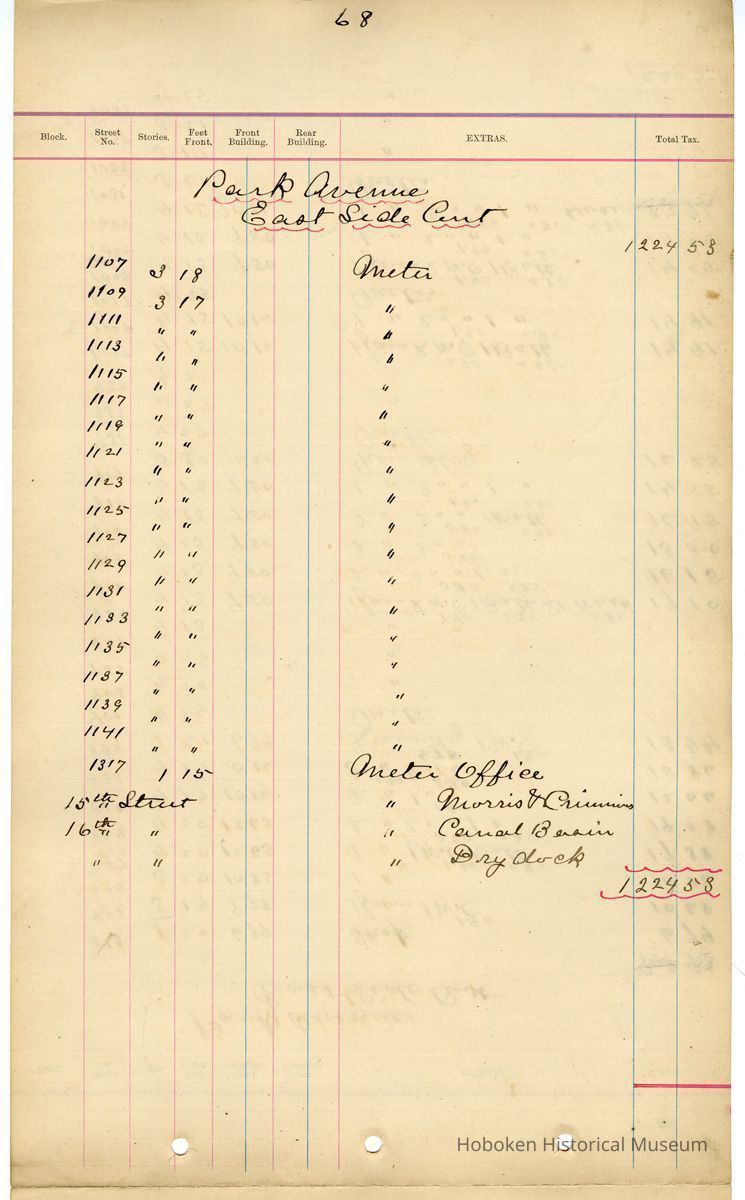 68
Block. Street No. Stories. Feet Front. Front Building. Rear Building. EXTRAS. Total Tax.
Park Avenue
East Side Cont
1224 53
1107 3 18 Meter
1109 3 17 "
1111 " " "
1113 " " "
1115 " " "
1117 " " "
1119 " " "
1121 " " "
1123 " " "
1125 " " "
1127 " " "
1129 " " "
1131 " " "
1133 " " "
1135 " " "
1137 " " "
1139 " " "
1141 " " "
1317 1 15 Meter Office
15th Street " Morris & Crimmins
16th " " Canal Basin
" " " Dry dock
1224 53
Hoboken Historical Museum